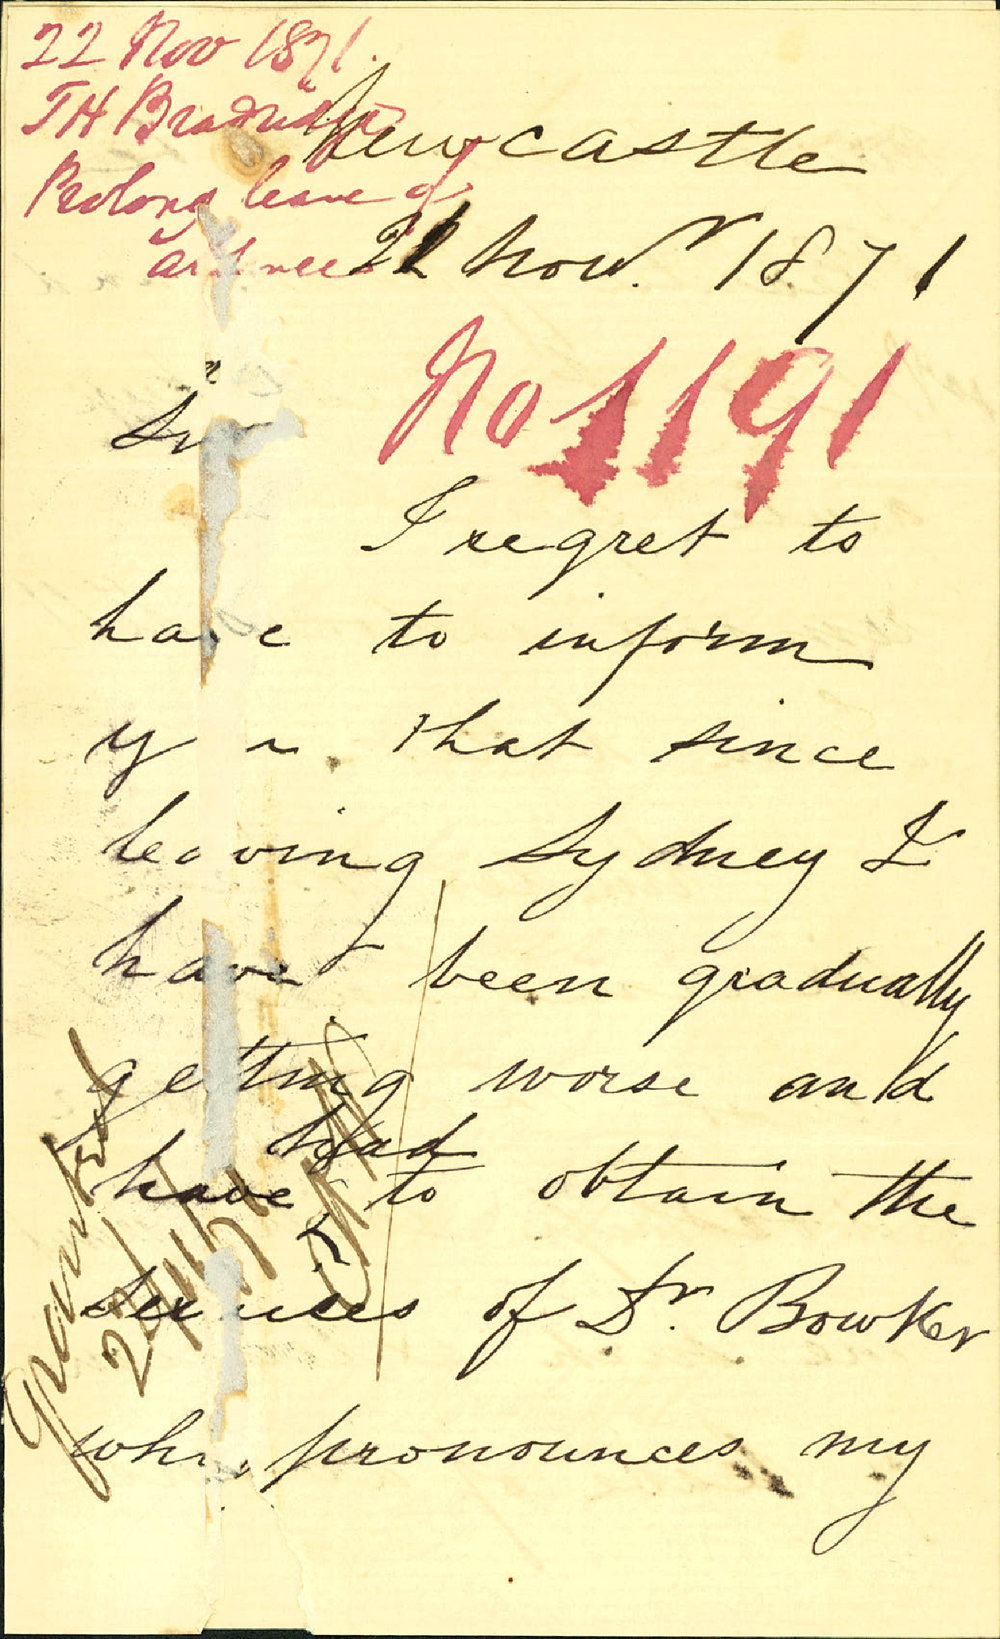 22 Nov 1871.
TH Bradridge
Prolong leave of
Newcastle
Nov.r 1871
No 1191
Sir
I regret to
have to inform
you that since
leaving Sydney I
have been gradually
getting worse and
have had to obtain the
services of Dr. Bowker
who pronounces my
Granted